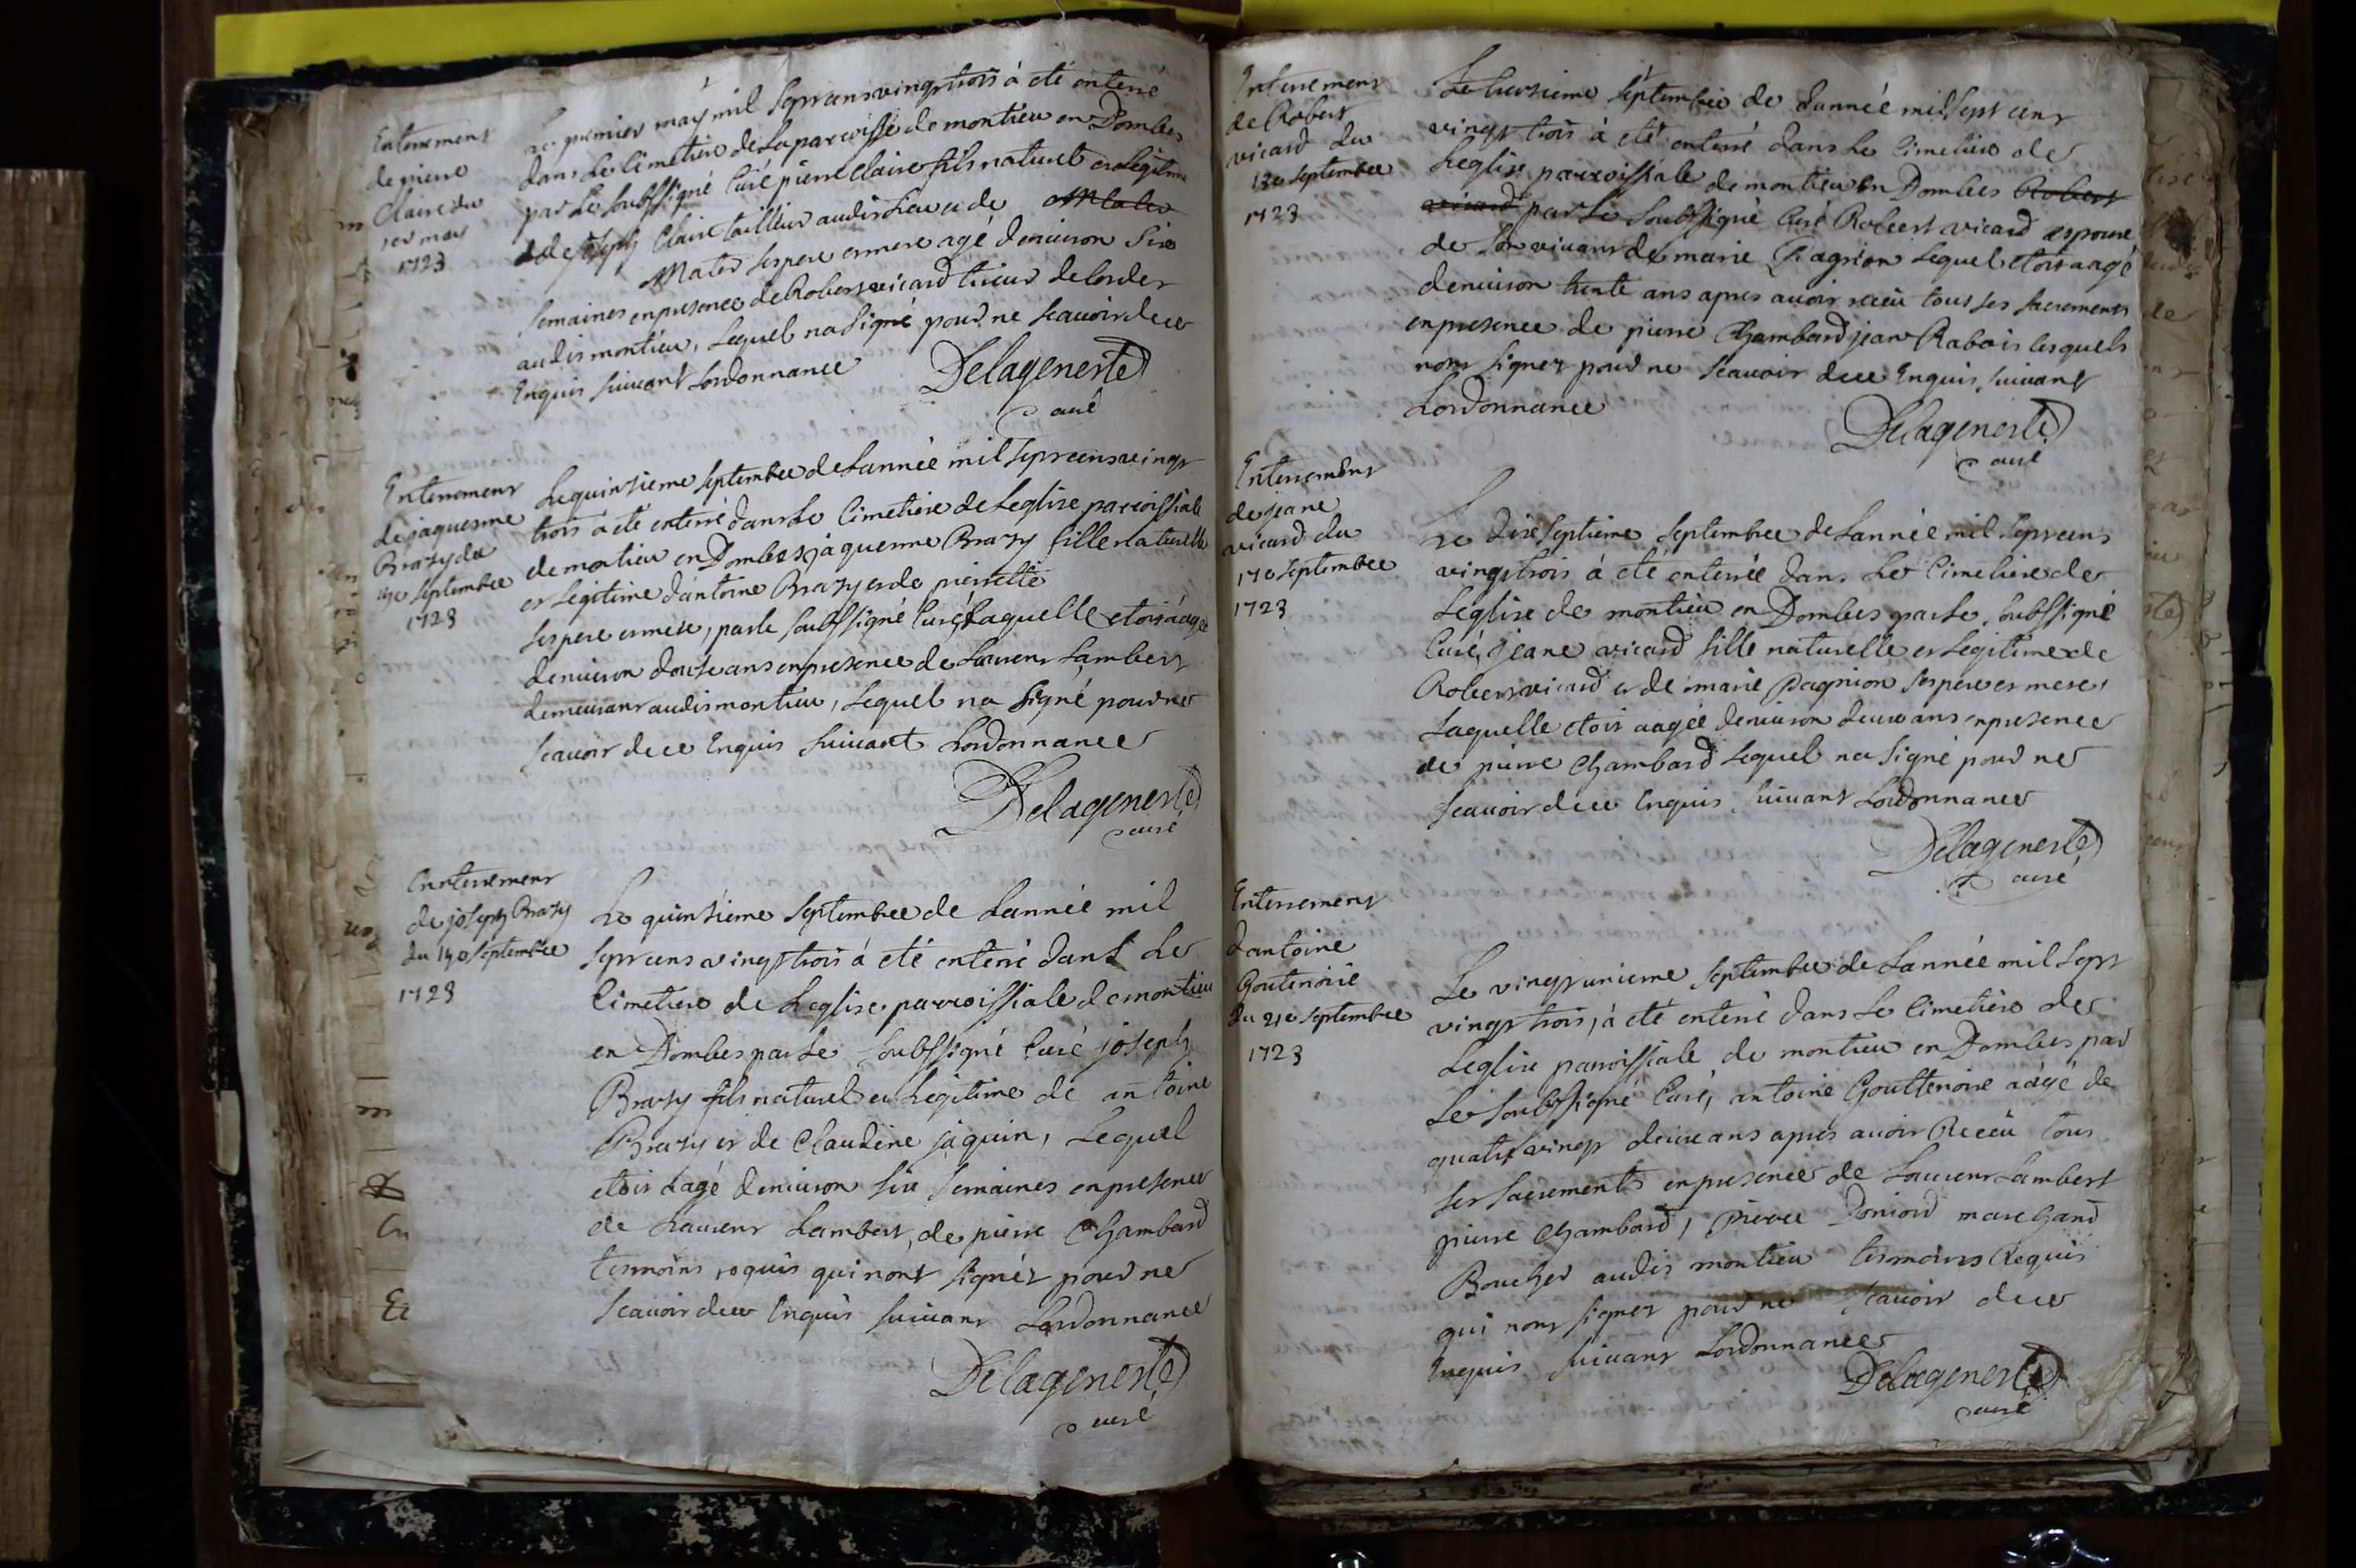 Enterrement
de pierre
Claire du
1er may
1723
Le premier may mil sept cens vingt trois à eté enterré
dans le Cimetiere de la parroisse de montieu en Dombes
par le soubssigné Curé pierre Claire fils naturel et legitime
de joseph Claire tailleur audit lieu et de
Mater ses pere et mere agé denuiron six
semaines en presence de Robert vicard tixeur de
audit montieu, lequel na signé pour ne scauoir de ce
Enquis suiuant lordonnance
Delageneste
curé
Enterrement
de jaquesme
Brazy du
15e septembre
1723
Le quinsieme septembre de Lanneé mil sept cens vingt
trois à eté enterré dans le Cimetiere de Leglise parroissiale
de montieu en Dombes jaquesme Brazy fille naturelle
et legitime dantoine Brazy et de pierrette
ses pere et mere, par le soubssigné Curé, Laquelle etoit aageé
denuiron douse ans en presence de Laurent Lambert
demeurant audit montieu, Lequel na signé pour ne
scauoir de ce Enquis suiuant Lordonnance
Delageneste
curé
Enterrement
de joseph Brazy
du 15e septembre
1723
Le quinsieme septembre de Lanneé mil
sept cens vingt trois à eté enterré dans le
Cimetiere de Leglise parroissiale de montieu
en Dombes par le soubssigné Curé joseph
Brazy fils naturel et Legitime de antoine
Brazy et de Claudine jaquin, Lequel
etoit aagé denuiron six semaines en presence
de Laurent Lambert, de pierre Chambard
tesmoins requis qui nont signér pour ne
scauoir de ce Enquis suiuant Lordonnance
Delageneste
curé
Enterrement
de Robert
vicard du
13e septembre
1723
Le treisieme septembre de Lanneé mil sept cent
vingt trois à eté enterré dans le Cimetiere de
Leglise parroissiale de montieu en Dombes Robert
vicard par le soubssigné Curé Robert vicard espoux
de son viuant de marie Pagnion Lequel etoit aagé
denuiron trente ans apres auoir receu tous ses sacrements
en presence de pierre Chambard jean Rabois lesquels
nont signer pour ne scauoir de ce Enquis suiuant
Lordonnance
Delageneste
curé
Enterrement
de jeane
vicard du
17e septembre
1723
Le dixseptieme septembre de Lanneé mil sept cens
vingt trois à eté enterreé dans le Cimetiere de
Leglise de montieu en Dombes par le soubssigné
Curé, jeane vicard fille naturelle et Legitime de
Robert vicard et de marie Pagnion ses pere et mere,
Laquelle etoit aageé denuiron deux ans en presence
de pierre Chambard Lequel na signé pour ne
scauoir de ce Enquis suiuant Lordonnance
Delageneste
curé
Enterrement
dantoine
Goutenoire
du 21e septembre
1723
Le vingt unieme septembre de Lanneé mil sept
vingt trois, à eté enterré dans le Cimetiere de
Leglise parroissiale de montieu en Dombes par
Le soubssigné Curé, antoine Gouttenoire aagé de
quatre vingt deux ans apres auoir Receu tous
ses sacrements en presence de Laurent Lambert
pierre Chambard, pierre Doniord marchand
Boucher audit montieu tesmoins Requis
qui nont signer pour ne scauoir de ce
Enquis suiuant Lordonnance
Delageneste
curé